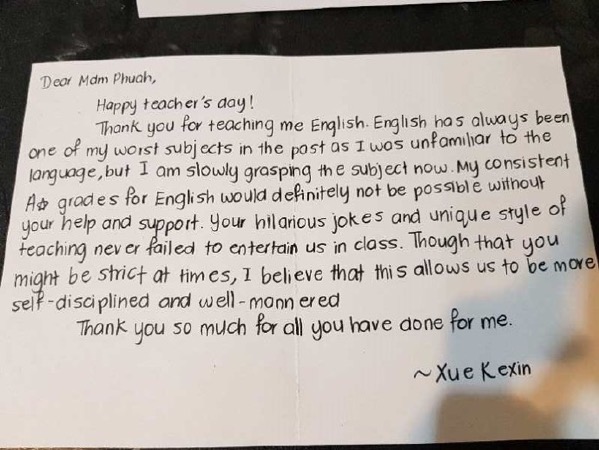 Dear Mdm Phuah,
Happy teacher's day!
Thank you for teaching me English. English has always been
one of my worst subjects in the past as I was unfamiliar to the
language, but I am slowly grasping the subject now. My consistent
A☆ grades for English would definitely not be possible without
your help and support. Your hilarious jokes and unique style of
teaching never failed to entertain us in class. Though that you
might be strict at times, I believe that this allows us to be more
self-disciplined and well-mannered
Thank you so much for all you have done for me.
~Xue Kexin